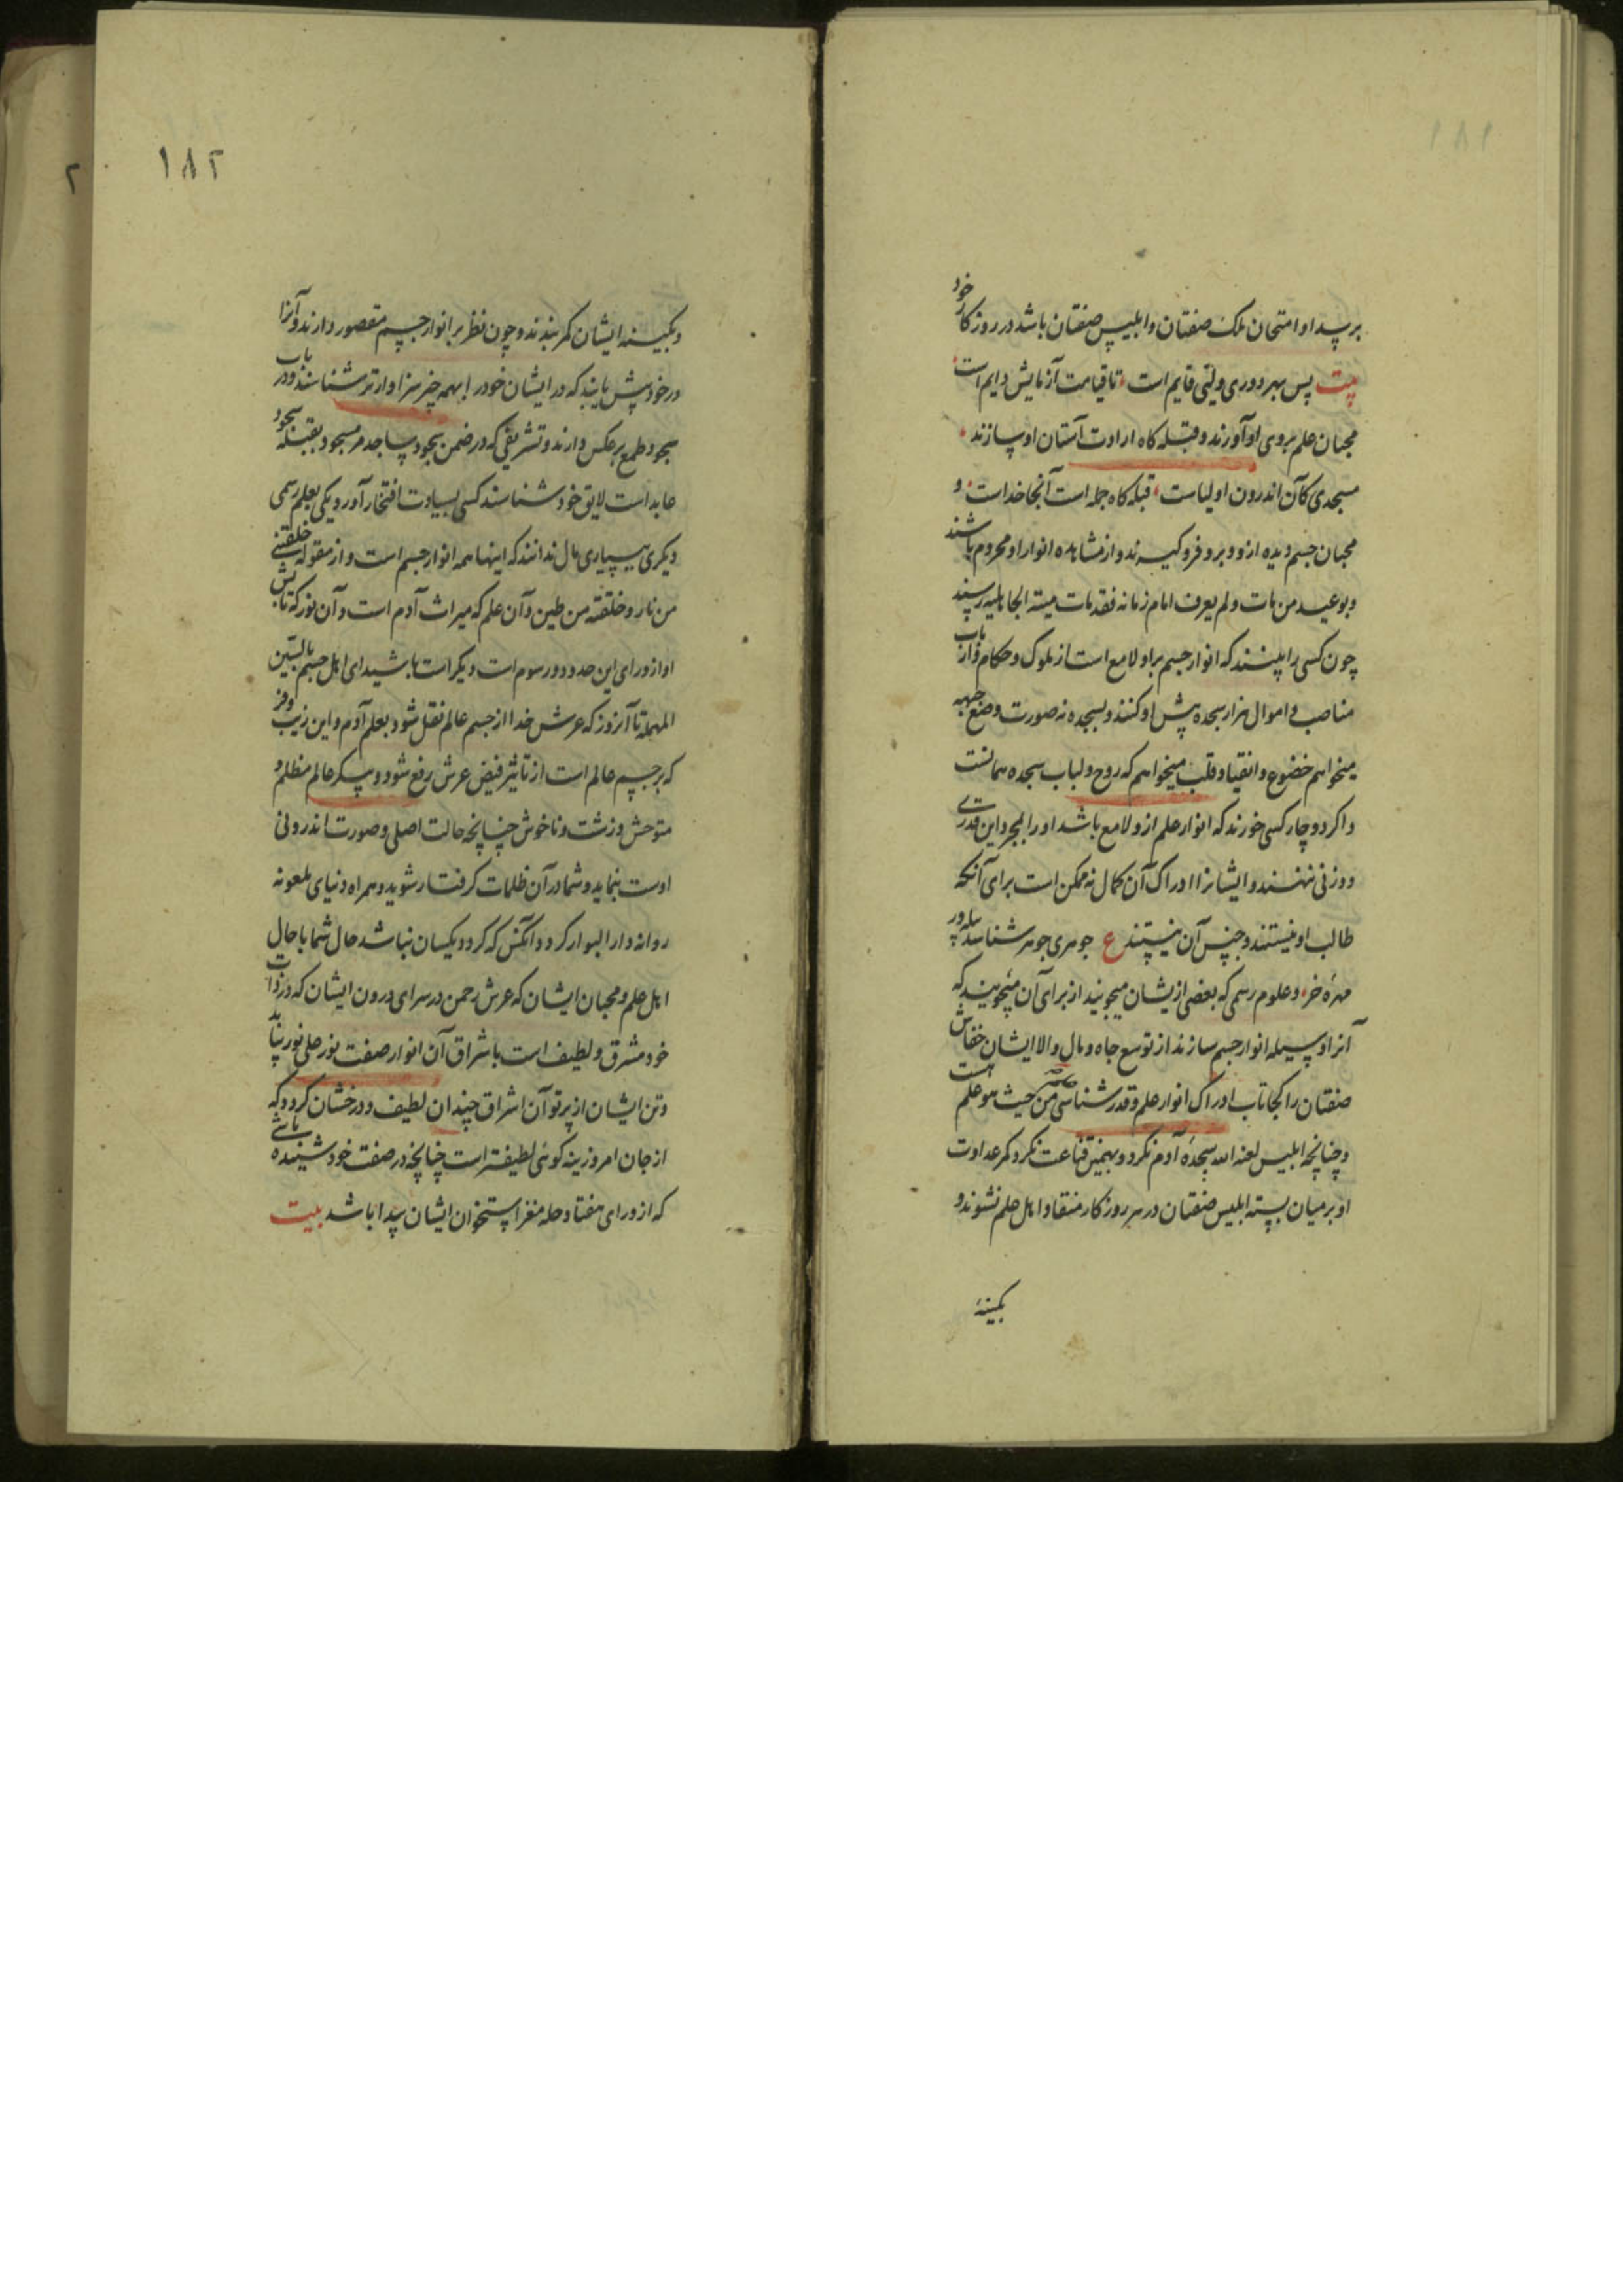 ۱۸۱
برسد او امتحان ملک صفتان و ابلیس صفتان باشد در روزکار خود
بیت پس بهر دوری ولیّی قایم است تا قیامت آزمایش دایم است
محبان علم بروی او آورند و قبله کاه ارادت آستان او سازند
مسجدی کآن اندرون اولیاست قبله کاه جمله است آنجا خداست و
محبان جسم دیده ازو و برو فرو کیرند و از مشاهده انوار او محروم باشند
و بوعید من مات ولم یعرف امام زمانه فقد مات میتة الجاهلیه رسند
چون کسی را بینند که انوار جسم براو لامع است از ملوک و حکام و ارباب
مناصب و اموال هزار سجده پیش او کنند و بسجده نه صورت وضع جبهه
میخواهم خضوع و انقیاد قلب میخواهم که روح و لباب سجده همانست
و اکر دوچار کسی خورند که انوار علم ازو لامع باشد او را بمجرد این قدری
و وزنی ننهند و ایشانرا ادراک آن کمال نه ممکن است برای آنکه
طالب او نیستند و جنس آن نیستند ع جوهری جوهر شناسد پیله‌ور
مهرهٔ خر و علوم رسمی که بعضی ازیشان میجویند از برای آن میجویند که
آنرا وسیله انوار جسم سازند از توسع جاه و مال و الا ایشان خفاش
صفتان را کجا تاب ادراک انوار علم و قدرشناسی من حیث هو علم است
و چنانچه ابلیس لعنه الله سجدهٔ آدم نکرد و بهمین قناعت نکرد کمر عداوت
او بر میان بسته ابلیس صفتان در هر روزکار منقاد اهل علم نشوند و
بکینهٔ
۱۸۲
و بکینه ایشان کمر بندند و چون نظر بر انوار جسم مقصور دارند و آنرا
در خود بیش یابند که در ایشان خود را بهمه چیز سزاوارتر شناسند و در باب
سجود طمع بر عکس دارند و تشریفی که در ضمن سجود ساجد مر مسجود بقبله سجود
عابد است لایق خود شناسند کسی بسیادت افتخار آورد یکی بعلم رسمی
دیکری ببسیاری مال ندانند که اینها همه انوار جسم است و از مقوله خلقتنی
من نار و خلقته من طین و آن علم که میراث آدم است و آن نور که تابش
او از ورای این حدود و رسوم است دیکر است باشید ای اهل جسم بالستین
المهمله تا آنروز که عرش خدا از جسم عالم نقل شود بعلم آدم و این زیب و فر
که بر جسم عالم است از تاثیر فیض عرش رفع شود و پیکر عالم مظلم و
متوحش و زشت و ناخوش چنانچه حالت اصلی و صورت اندرونی
اوست بنماید و شما در آن ظلمات کرفتار شوید و همراه دنیای ملعونه
روانه دار البوار کردد آنکس که کرود یکسان نباشد حال شما با حال
اهل علم و محبان ایشان که عرش رحمن در سرای درون ایشان که در ذات
خود مشرق و لطیف است باشراق آن انوار صفت نور علی نور بیابد
و تن ایشان از پرتو آن اشراق چندان لطیف و درخشان کردد که
از جان امروزینه کوئی لطیفتر است چنانچه در صفت خود شنیده باشی
که از ورای هفتاد حله مغز استخوان ایشان پیدا باشد بیت